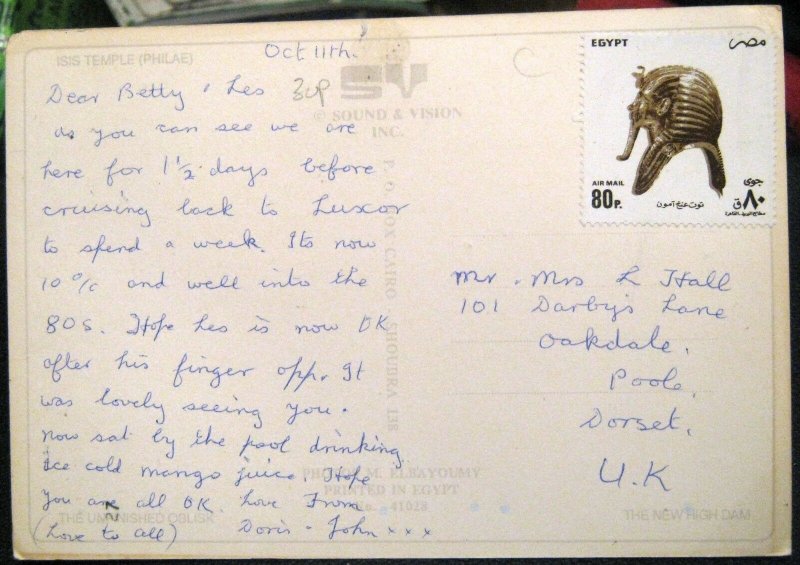 ISIS TEMPLE (PHILAE)
Oct 11th.
EGYPT مصر
Dear Betty & Les 30p
SV
© SOUND & VISION
INC.
as you can see we are
here for 1½ days before
cruising back to Luxor
to spend a week. Its now
10 o/c and well into the
80s. Hope Les is now OK
after his finger opp. It
was lovely seeing you.
now sat by the pool drinking
ice cold mango juice. Hope
you are all OK. Love From
(Love to all) Doris & John xxx
AIR MAIL
80P.
توت عنخ آمون
جوى
٨٠ ق
Mr & Mrs L Hall
101 Darby's Lane
Oakdale,
Poole,
Dorset,
U.K
P. O. BOX CAIRO SHOUBRA 138
PHOTOS M. ELBAYOUMY
PRINTED IN EGYPT
No. 41028
THE UNFINISHED OBLISK
THE NEW HIGH DAM